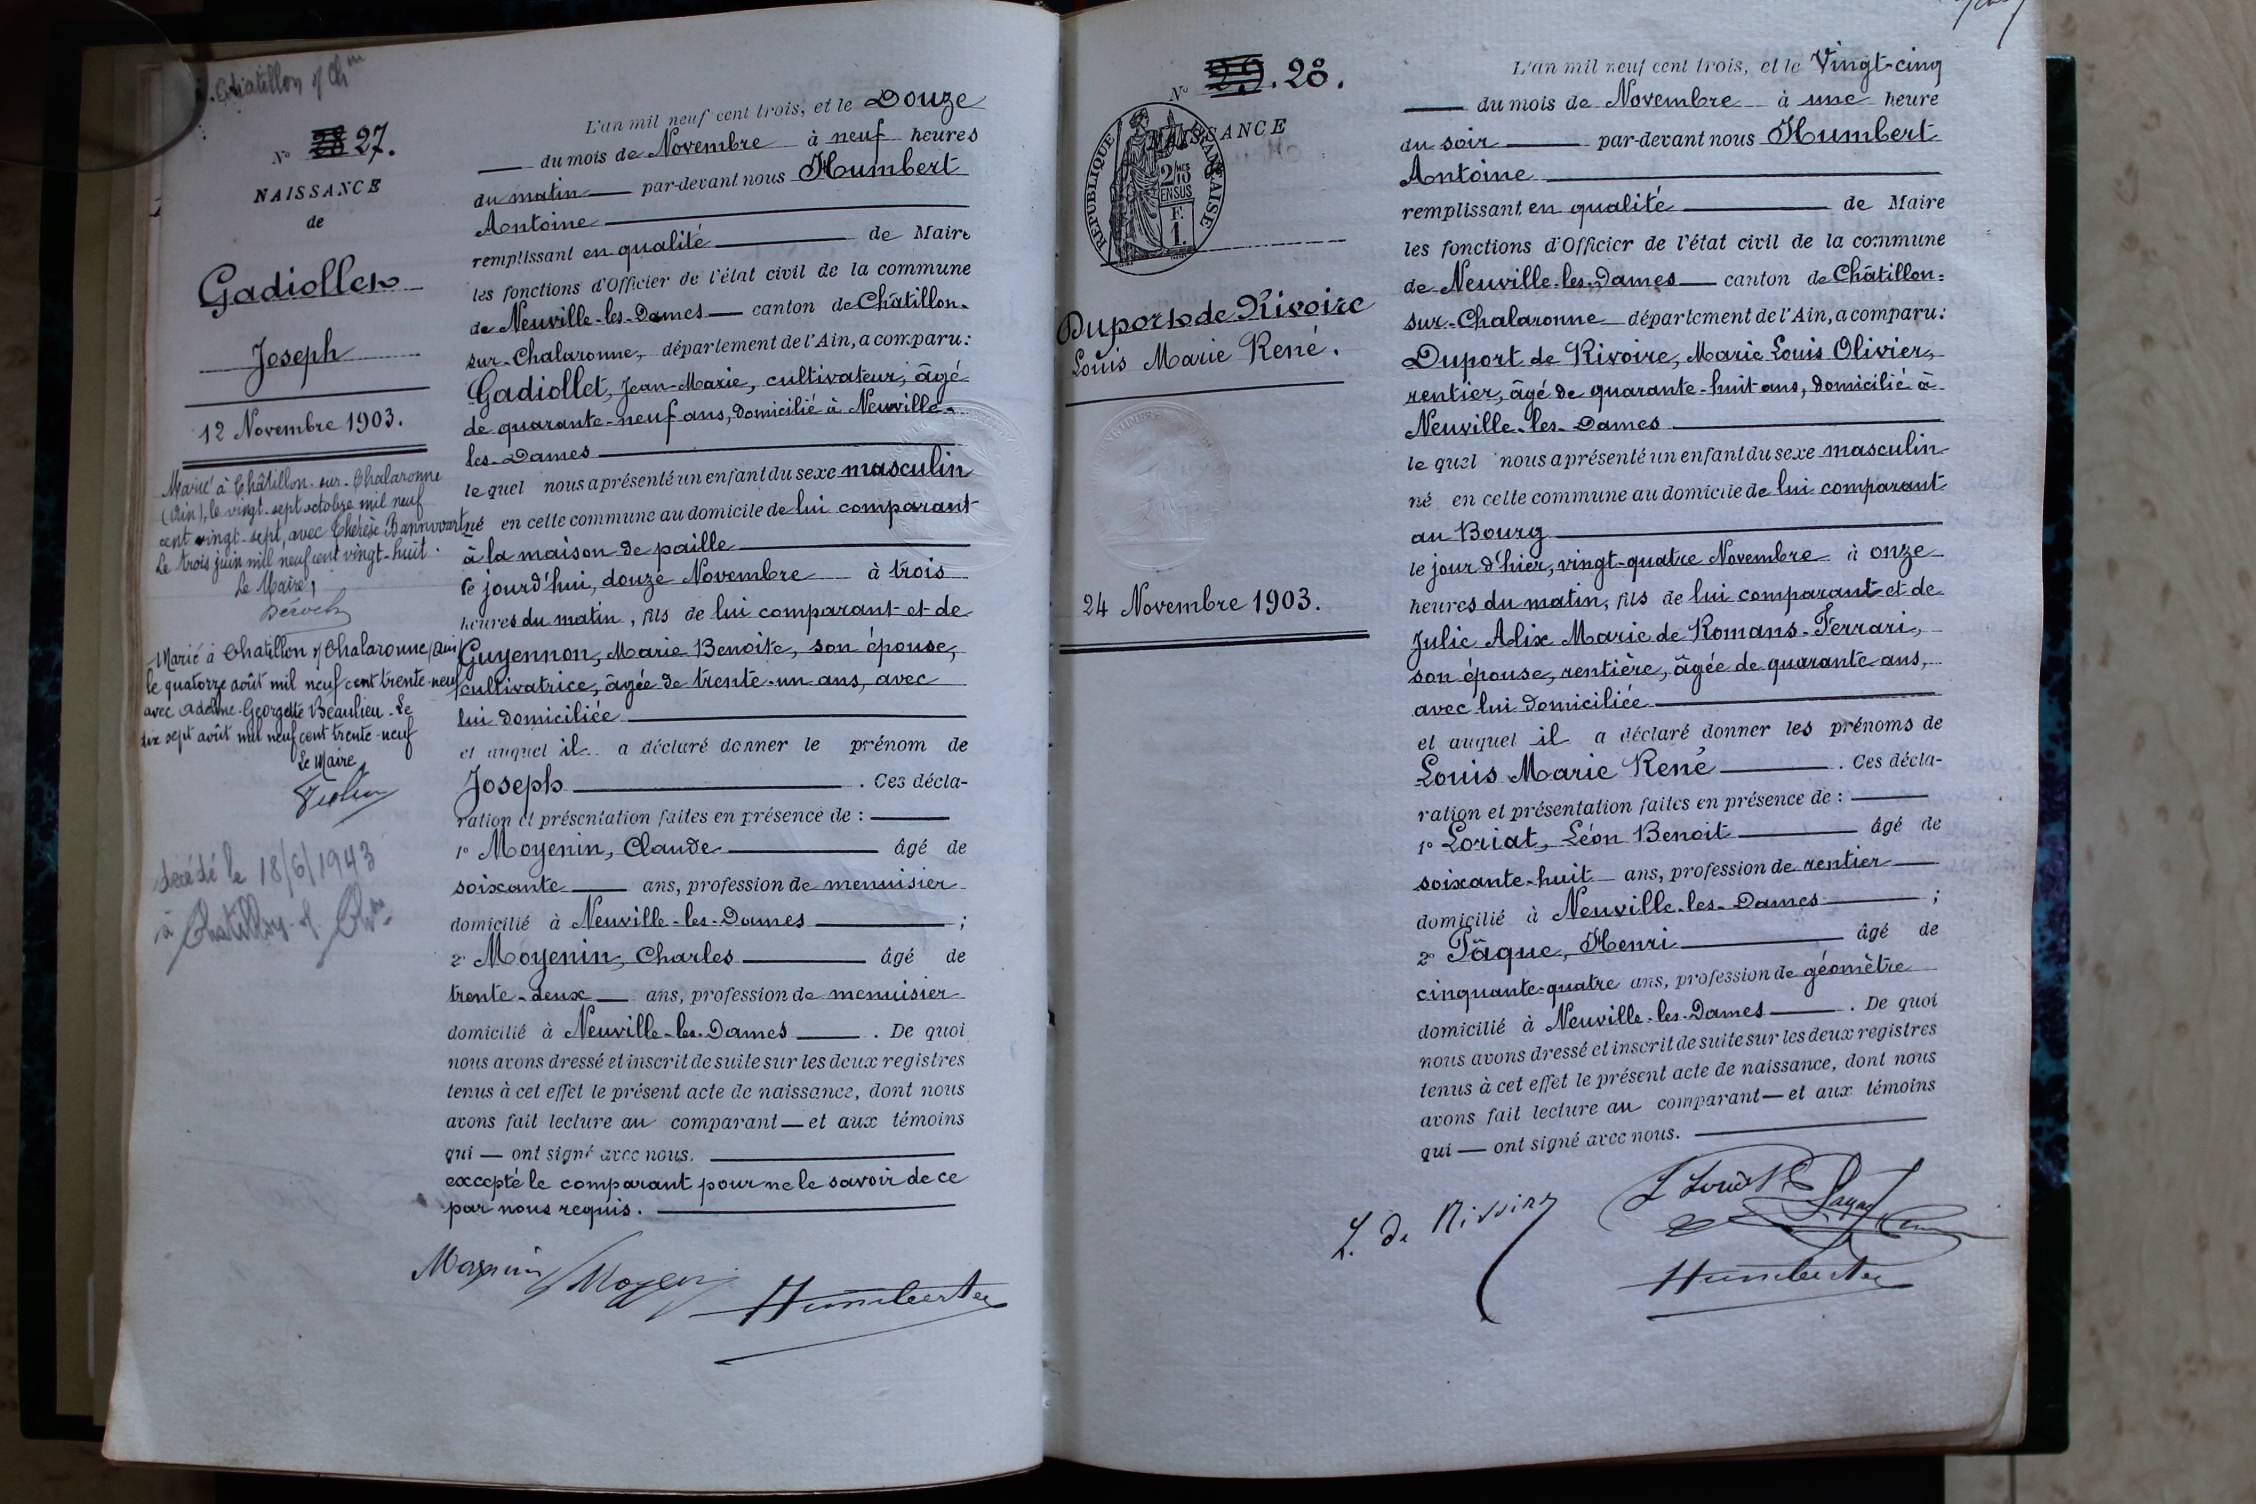 Chatillon s/ Chne
N° 28 27.
NAISSANCE
de
Gadiollet
Joseph
12 Novembre 1903.
Marié à Châtillon-sur-Chalaronne
(Ain), le vingt-sept octobre mil neuf
cent vingt-sept, avec Thérèse Bannwart
Le trois juin mil neuf cent vingt-huit.
Le Maire,
Marié à Chatillon s/ Chalaronne (Ain)
le quatorze août mil neuf cent trente-neuf
avec Adeline-Georgette Beaulieu. Le
dix sept août mil neuf cent trente-neuf
Le Maire
décédé le 18/6/1943
à Chatillon-s/-Chne
L'an mil neuf cent trois, et le Douze
du mois de Novembre à neuf heures
du matin par-devant nous Humbert
Antoine
remplissant en qualité de Maire
les fonctions d'Officier de l'état civil de la commune
de Neuville-les-Dames canton de Châtillon-
sur-Chalaronne, département de l'Ain, a comparu:
Gadiollet, Jean-Marie, cultivateur, âgé
de quarante-neuf ans, domicilié à Neuville-
les-Dames
lequel nous a présenté un enfant du sexe masculin
né en cette commune au domicile de lui comparant
à la maison de paille
le jourd'hui, douze Novembre à trois
heures du matin, fils de lui comparant et de
Guyennon, Marie Benoite, son épouse,
cultivatrice, âgée de trente-un ans, avec
lui domiciliée
et auquel il a déclaré donner le prénom de
Joseph . Ces décla-
ration et présentation faites en présence de :
1° Moyenin, Claude âgé de
soixante ans, profession de menuisier
domicilié à Neuville-les-Dames ;
2° Moyenin, Charles âgé de
trente-deux ans, profession de menuisier
domicilié à Neuville-les-Dames . De quoi
nous avons dressé et inscrit de suite sur les deux registres
tenus à cet effet le présent acte de naissance, dont nous
avons fait lecture au comparant — et aux témoins
qui — ont signé avec nous.
excepté le comparant pour ne le savoir de ce
par nous requis.
Moyenin Moyenin Humbert
N° 29. 28.
NAISSANCE
RÉPUBLIQUE FRANÇAISE
2 MES
10
EN SUS
F.
1.
Duport de Rivoire
Louis Marie René.
24 Novembre 1903.
L'an mil neuf cent trois, et le Vingt-cinq
du mois de Novembre à une heure
du soir par-devant nous Humbert
Antoine
remplissant en qualité de Maire
les fonctions d'Officier de l'état civil de la commune
de Neuville-les-Dames canton de Châtillon-
sur-Chalaronne département de l'Ain, a comparu:
Duport de Rivoire, Marie Louis Olivier,
rentier, âgé de quarante-huit ans, domicilié à
Neuville-les-Dames
lequel nous a présenté un enfant du sexe masculin
né en cette commune au domicile de lui comparant
au Bourg
le jour d'hier, vingt-quatre Novembre à onze
heures du matin, fils de lui comparant et de
Julie Alix Marie de Romans-Ferrari,
son épouse, rentière, âgée de quarante ans,
avec lui domiciliée
et auquel il a déclaré donner les prénoms de
Louis Marie René . Ces décla-
ration et présentation faites en présence de :
1° Loriat, Léon Benoit âgé de
soixante-huit ans, profession de rentier
domicilié à Neuville-les-Dames ;
2° Pâque, Henri âgé de
cinquante-quatre ans, profession de géomètre
domicilié à Neuville-les-Dames . De quoi
nous avons dressé et inscrit de suite sur les deux registres
tenus à cet effet le présent acte de naissance, dont nous
avons fait lecture au comparant — et aux témoins
qui — ont signé avec nous.
L. de Rivoire
Humbert